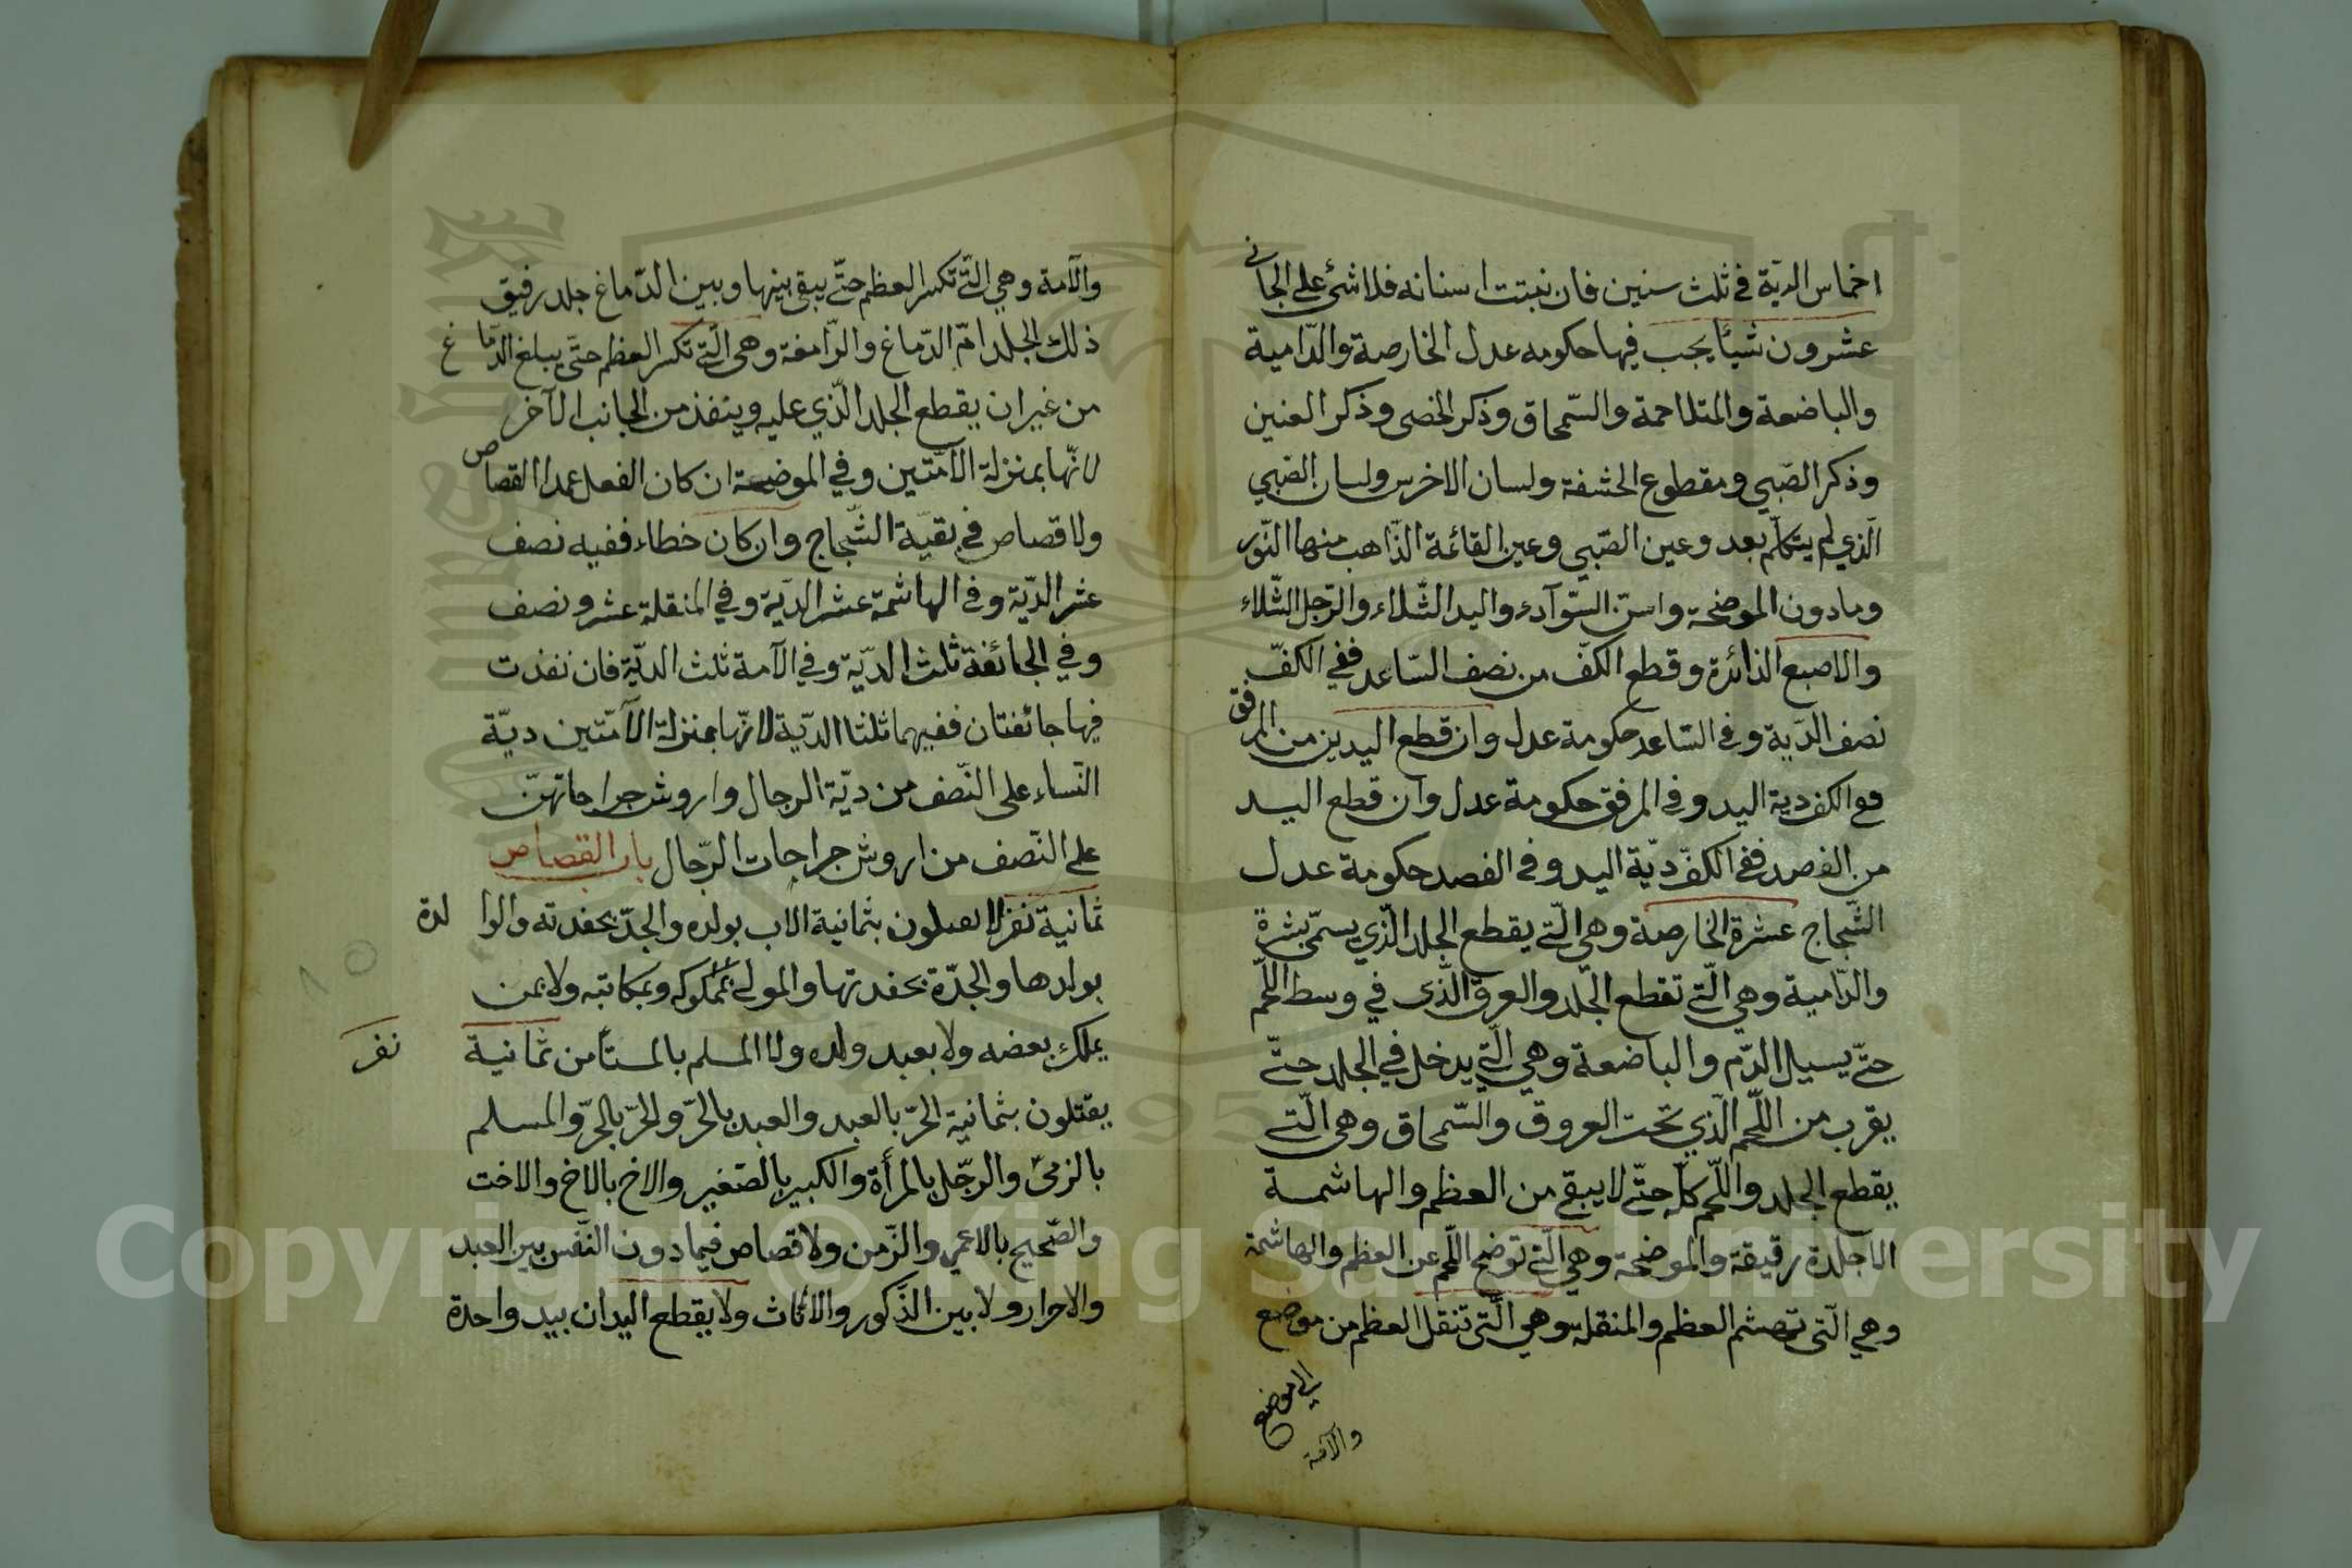 اخماس الديّة في ثلث سنين فان نبتت اسنانه فلا شئ على الجاني
عشرون شيئا يجب فيها حكومه عدل الخارصة والدّامية
والباضعة والمتلاحمة والسّمحاق وذكر الخصى وذكر العنين
وذكر الصّبي ومقطوع الحشفة ولسان الاخرس ولسان الصّبي
الّذي لم يتكلّم بعد وعين الصّبي وعين القائمة الذّاهب منها النّور
ومادون الموضحة واسنّ السّوآدء واليد الشّلاء والرّجل الشّلاء
والاصبع الزائدة وقطع الكفّ من نصف السّاعد ففي الكفّ
نصف الدّية وفي السّاعد حكومة عدل وان قطع اليدين من المرفق
فع الكف دية اليد وفي المرفق حكومة عدل وان قطع اليد
من الفصد ففي الكفّ ديّة اليد وفي الفصد حكومة عدل
الشّجاج عشرة الخارصة وهي الّتي يقطع الجلد الّذي يسمّى بشرة
والدّامية وهي الّتي تقطع الجّلد والعرق الّذى في وسط اللّحم
حتّى يسيل الدّم والباضعة وهي الّتي يدخل في الجلد حتّى
يقرب من اللّحم الّذي تحت العروق والسّمحاق وهي الّتي
يقطع الجلد واللّحم كلّه حتّى لا يبقى من العظم والهاشمة
الا جلدة رقيقة والموضحة وهي الّتي توضح اللّحم عن العظم والهاشمة
وهي الّتي تهشم العظم والمنقلة وهي الّتي تنقل العظم من موضع
الى موضع
والآمّة
والآمة وهي الّتي تكسر العظم حتّى يبقى بينها وبين الدّماغ جلد رقيق
ذلك الجلد امّ الدّماغ والدّامغة وهي الّتي تكسر العظم حتّى يبلغ الدّماغ
من غير ان يقطع الجلد الّذي عليه وينفذ من الجانب الآخر
لانّها بمنزلة الآمّتين وفي الموضحة ان كان الفعل عمدا القصاص
ولا قصاص في بقيّة الشّجاج وان كان خطاء ففيه نصف
عشر الدّيّة وفي الهاشمة عشر الديّة وفي المنقلة عشر ونصف
وفي الجائفة ثلث الديّة وفي الآمة ثلث الديّة فان نفذت
فيها جائفتان ففيهما ثلثا الدّية لانّها بمنزلة الآمّتين ديّة
النّساء على النّصف من ديّة الرجال واروش جراحاتهنّ
على النّصف من اروش جراحات الرّجال باب القصاص
ثمانية نفر لا يقتلون بثمانية الاب بولده والجدّ بحفدته والوالدة
بولدها والجدّة بحفدتها والمولى بمملوكه وبمكاتبه ولا بمن
يملك بعضه ولا بعبد ولده ولا المسلم بالمستأمن ثمانية نفر
يقتلون بثمانية الحرّ بالعبد والعبد بالحرّ والحرّ بالحرّ والمسلم
بالزمىّ والرجّل بالمرأة والكبير بالصّغير والاخ بالاخ والاخت
والصّحيح بالاعمى والزّمن ولا قصاص فيمادون النّفس بين العبد
والاحرار ولا بين الذّكور والاناث ولا يقطع اليدان بيد واحدة
Copyright © King Saud University